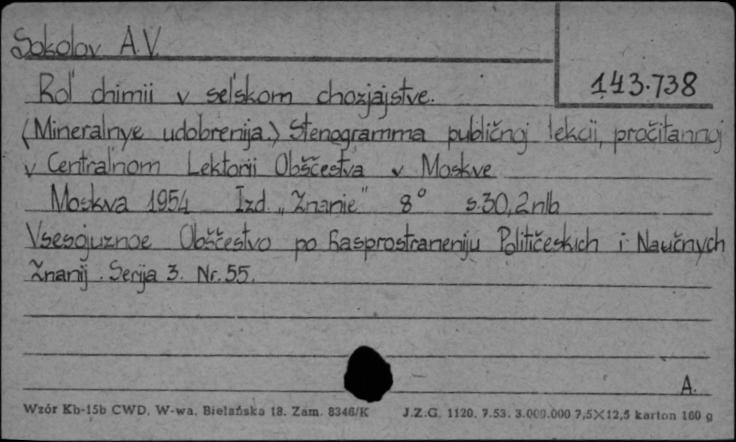 Sokolov A.V.
143.738
Rol' chimii v sel'skom chozjajstve.
(Mineralnye udobrenija.) Stenogramma publičnoj lekcii, pročitannoj
v Centralnom Lektorii Obščestva v Moskve
Moskva 1954 Izd. „Znanie" 8° s.30,2nlb
Vsesojuznoe Obščestvo po Rasprostraneniju Političeskich i Naučnych
Znanij. Serija 3. Nr. 55.
A.
Wzór Kb-15b CWD, W-wa, Bielańska 18. Zam. 8346/K J.Z.G. 1120. 7.53. 3.000.000 7,5×12,5 karton 160 g